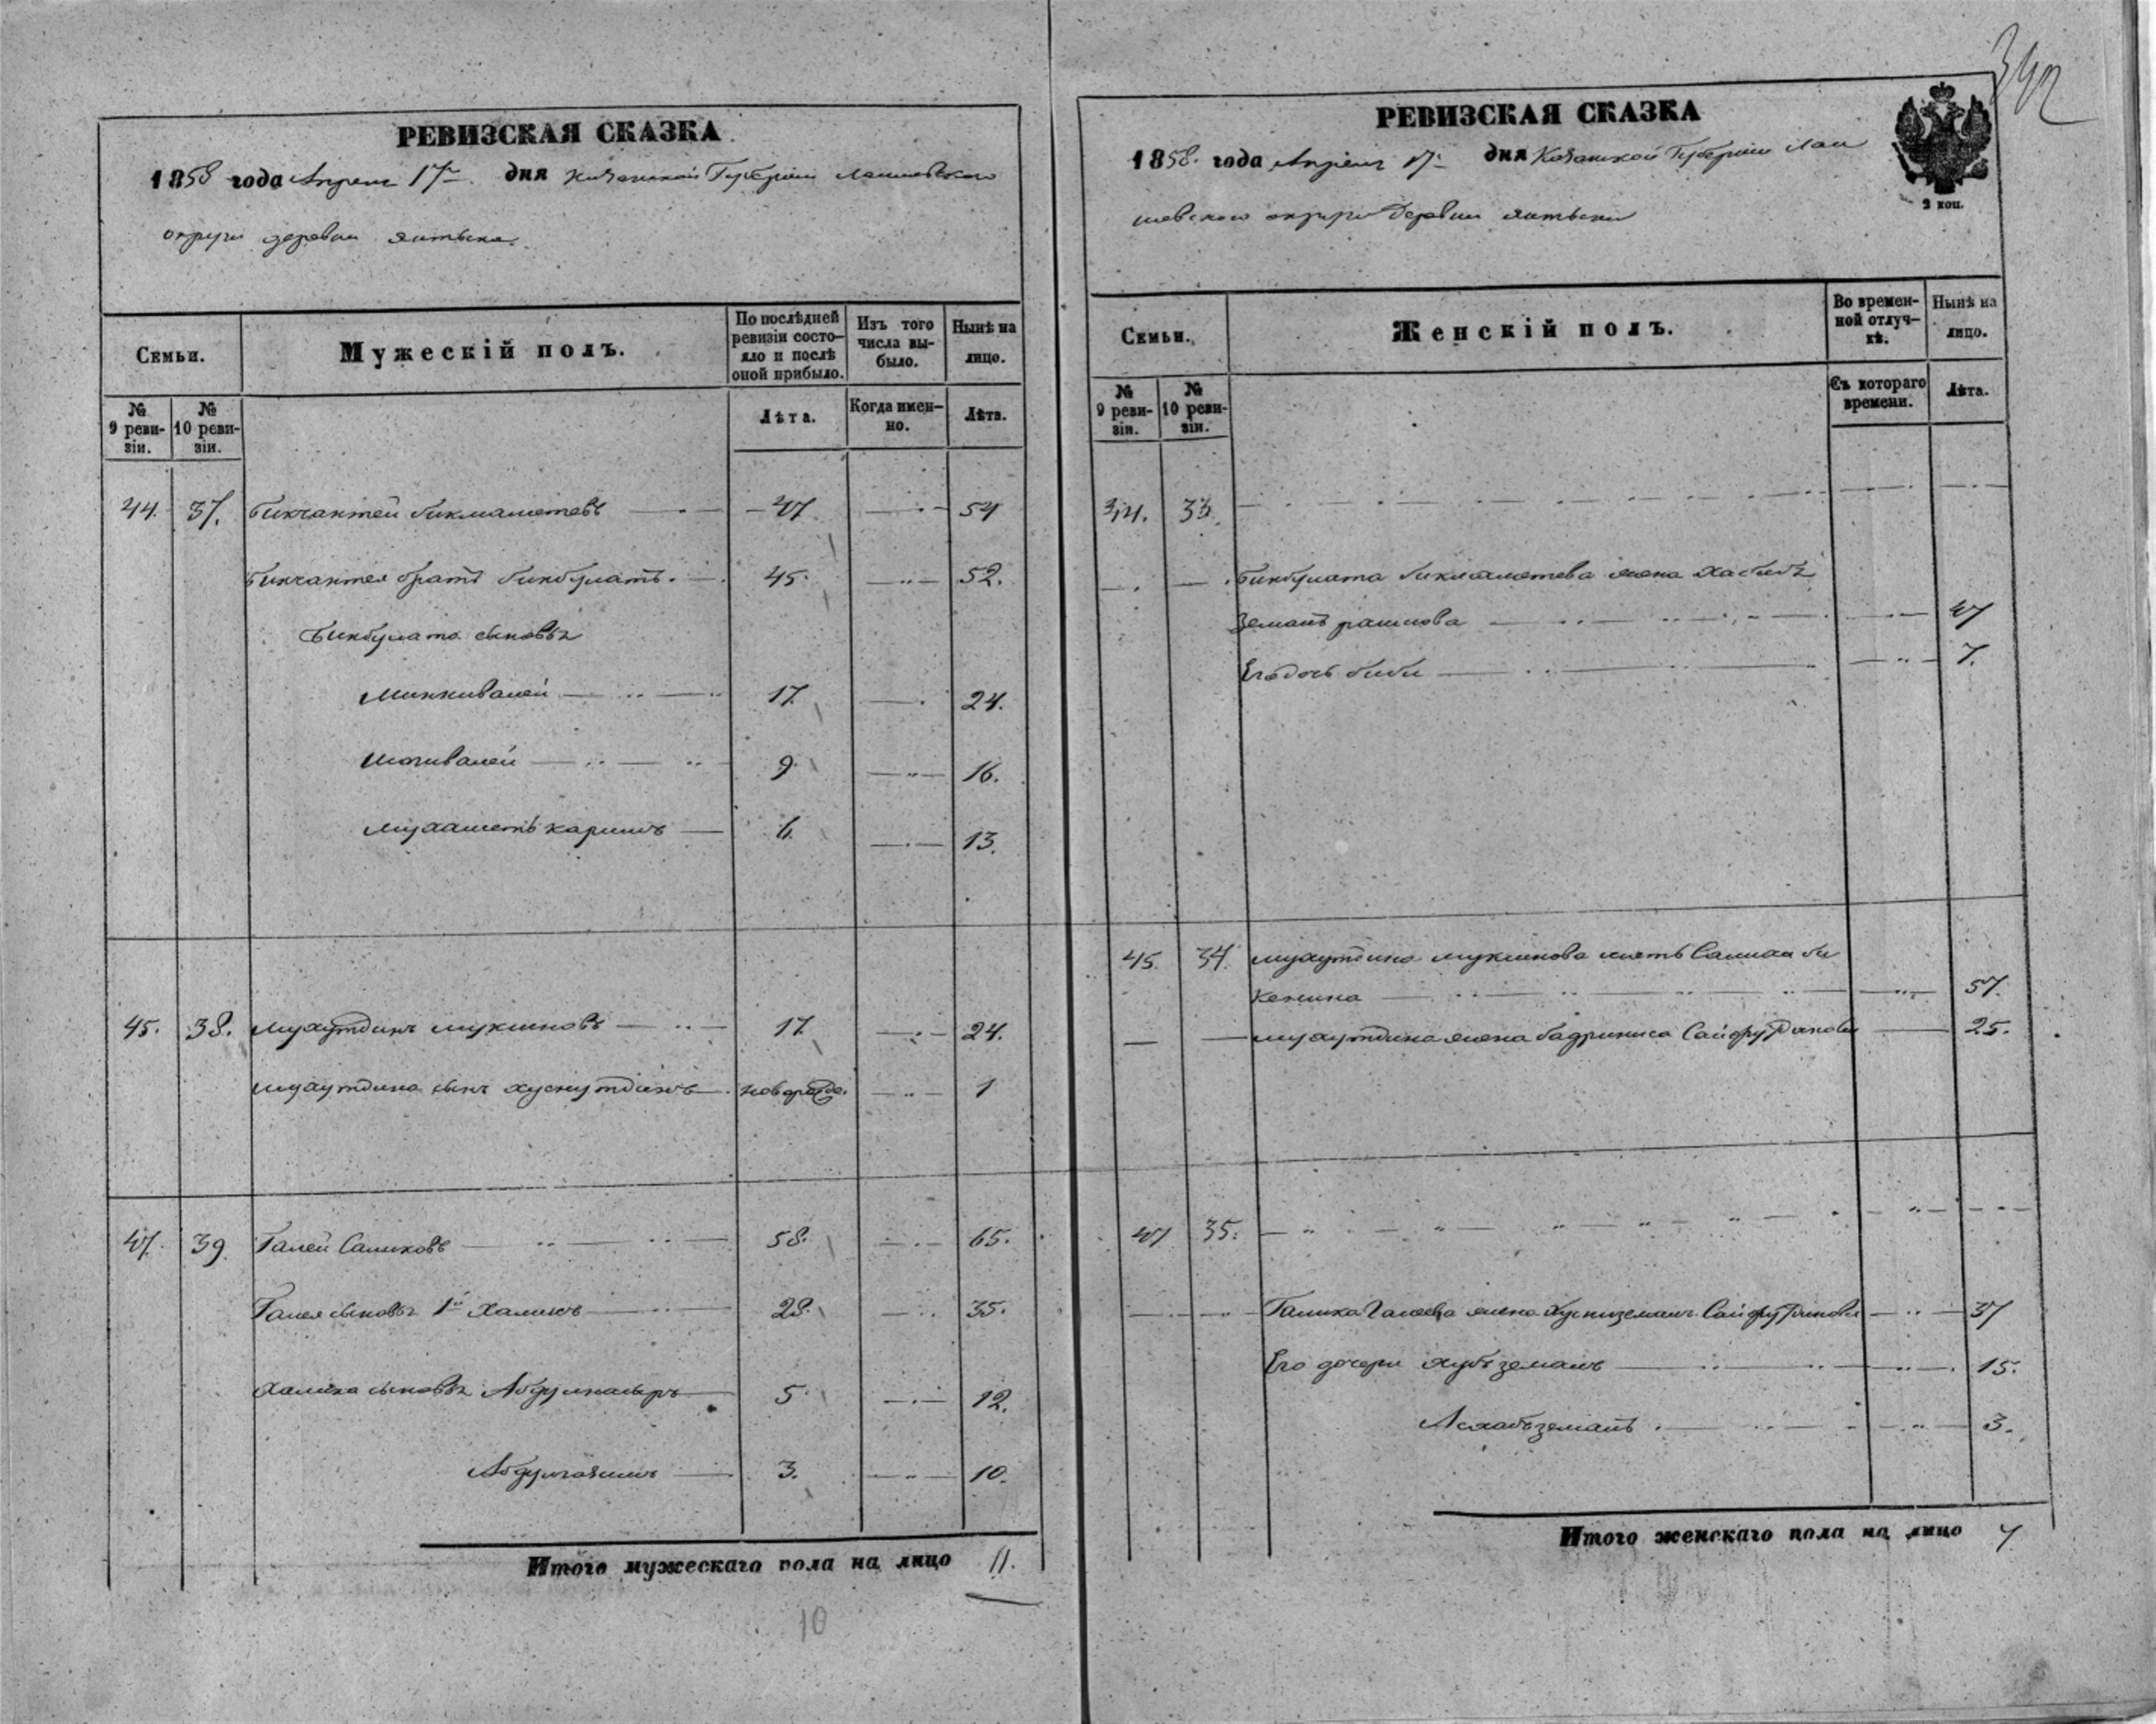 342
РЕВИЗСКАЯ СКАЗКА
1858 года Апреля 17го дня Казанской Губернии Лаишевского
округи деревни Янтыкъ.
Семьи.
Мужескій полъ.
По послѣдней ревизіи состояло и послѣ оной прибыло.
Изъ того числа выбыло.
Нынѣ на лицо.
№ 9 ревизіи.
№ 10 ревизіи.
Лѣта.
Когда именно.
Лѣта.
44. 37. Бикчантей бикмаметевъ 47 54
Бикчантея братъ бикбулатъ. 45. 52.
Бикбулата сыновья
Минкивалей 17. 24.
Шагивалей 9. 16.
Мухаметъ каримъ 6. 13.
45. 38. Мухутдинъ мукминовъ 17. 24.
Мухутдина сынъ хуснутдинъ новорожде. 1
47. 39. Галей Салиховъ 58. 65.
Галея сыновья 1й Халикъ 28. 35.
Халика сыновья Абдулнасыръ 5. 12.
3. 10.
Итого мужескаго пола на лицо 11.
10
РЕВИЗСКАЯ СКАЗКА
1858. года Апреля 17. дня Казанской Губернии Лаи
шевского округи Деревни Янтыки
2 коп.
Семьи.
Женскій полъ.
Во временной отлучкѣ.
Нынѣ на лицо.
№ 9 ревизіи.
№ 10 ревизіи.
Съ котораго времени.
Лѣта.
44. 33.
Бикбулата бикмаметева жена Хабиб
Земалъ рашитова 47
Его дочь биби 7.
45. 34. Мухутдина мукминова мать Салиха би
кенина 57.
Мухутдина жена бадриниса Сайфутдинова 25.
47 35.
Галика Галеева жена Хуснизема Сайфутдинова 37
Его дочери 15.
3.
Итого женскаго пола на лицо 7